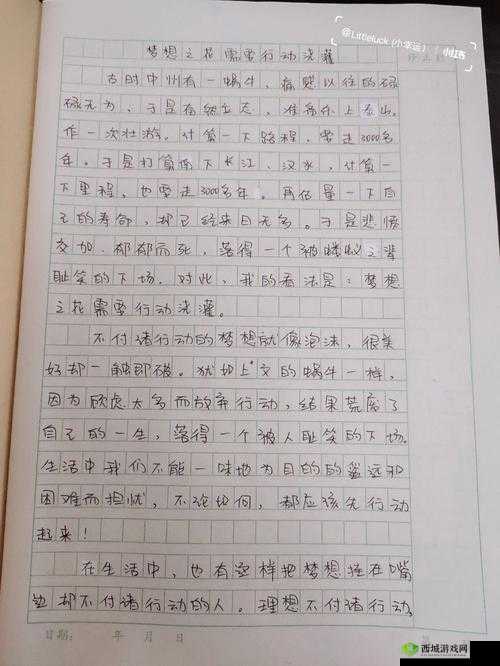 @Littleluck (小幸运)
梦想之花需要行动浇灌
古时中州有一蜗牛，有感以往的碌
碌无为，于是奋然立志，准备东上泰山，
作一次壮游。计算一下路程，需走3000多
年。于是打算南下长江、汉水，计算一
下里程，也要走3000多年。再估量一下自
己的寿命，却已经来日无多。于是悲愤
交加，郁郁而死，落得一个被蝼蚁之辈
耻笑的下场。对此，我的看法是：梦想
之花需要行动浇灌。
不付诸行动的梦想就像泡沫，很美
好却一触即破。犹如上文的蜗牛一样，
因为顾虑太多而放弃行动，结果荒废了
自己的一生，落得一个被人耻笑的下场。
生活中我们不能一味地为目的的遥远和
困难而担忧，不论如何，都应该先行动
起来！
在生活中，也有这样把梦想挂在嘴
边却不付诸行动的人。理想不付诸行动，
日期： 年 月 日
西城游戏网